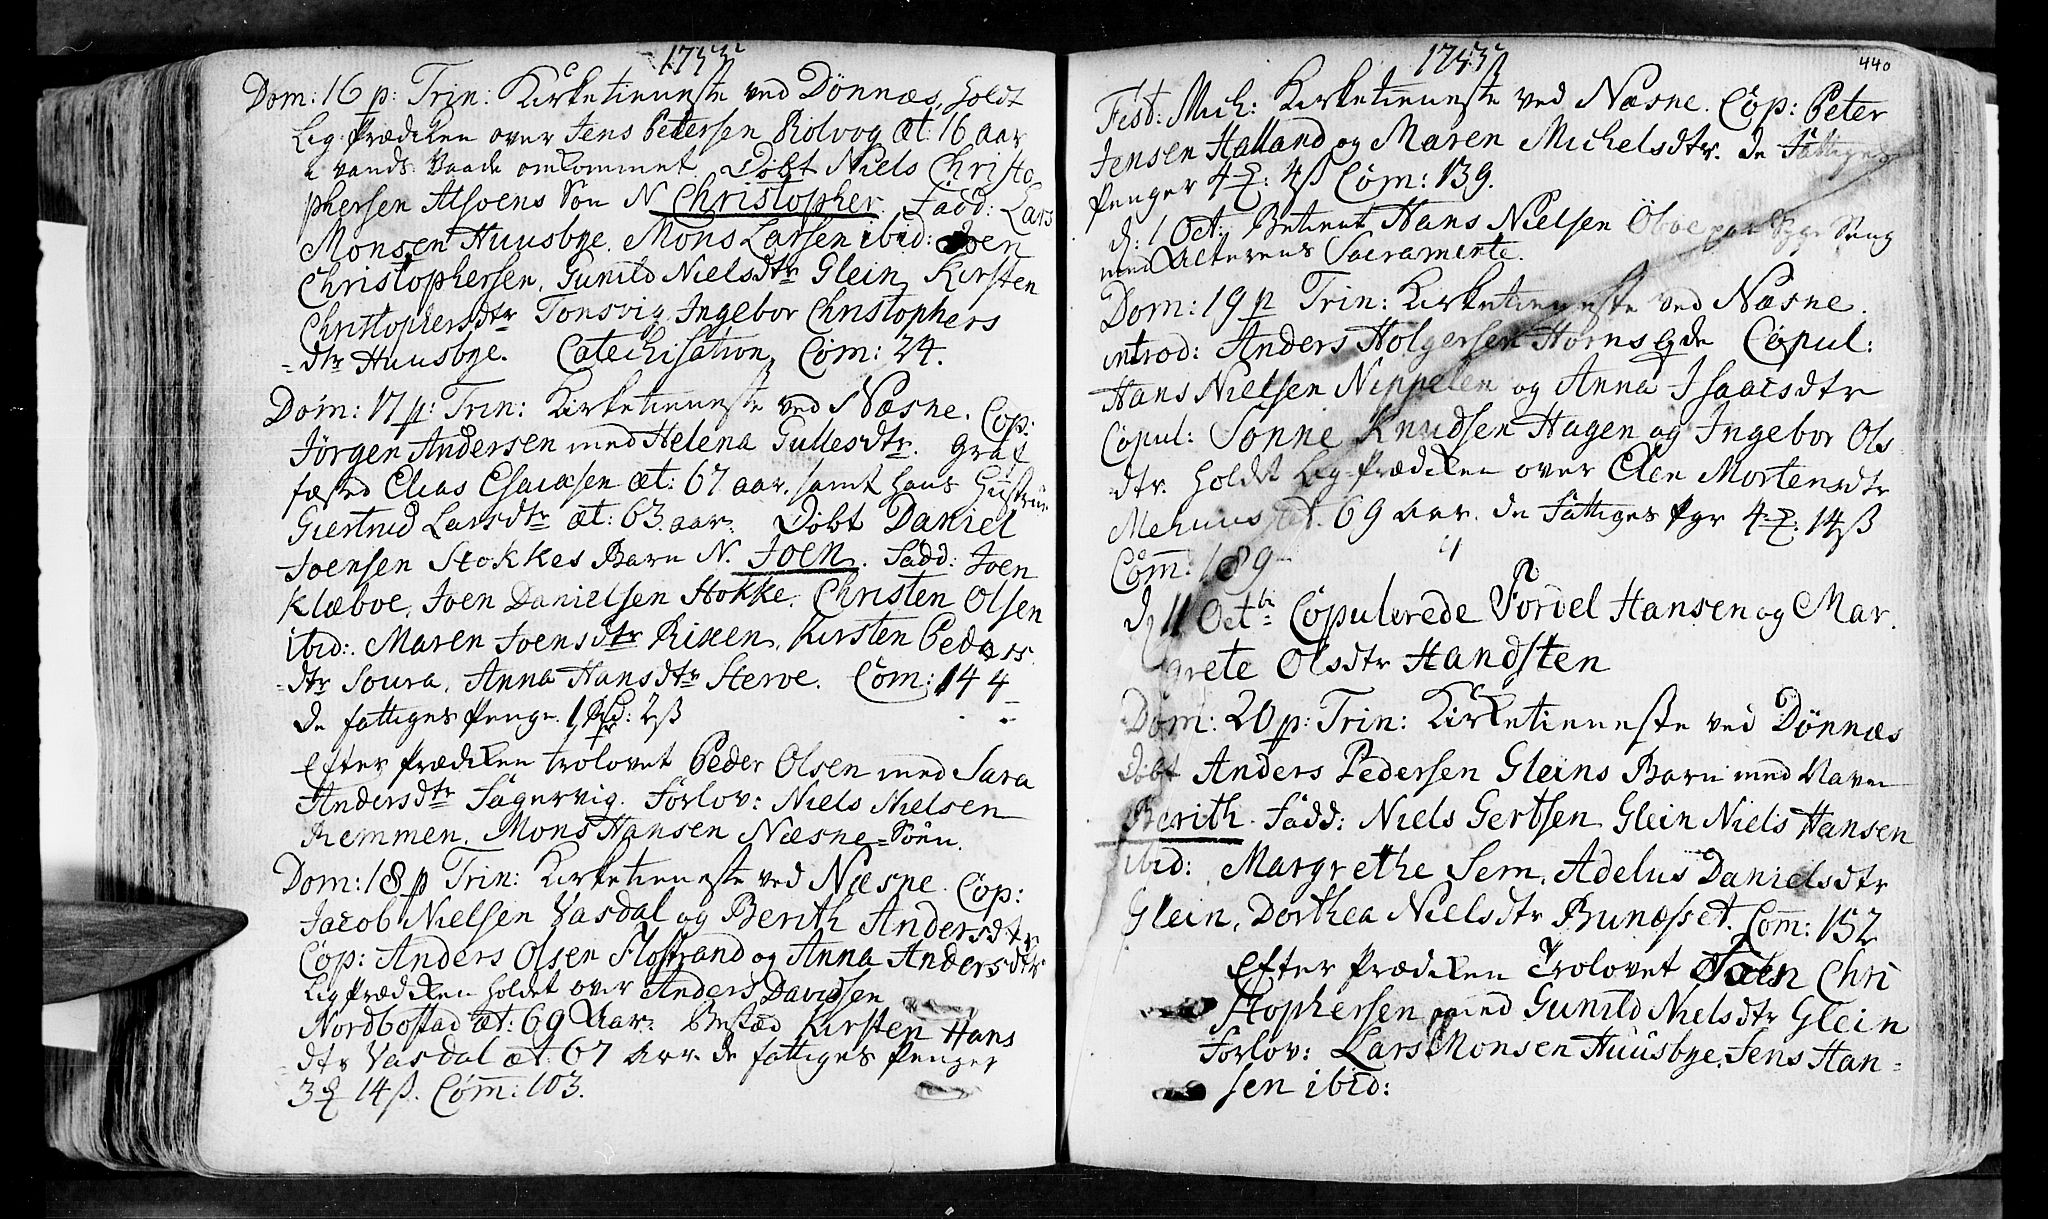 1753
Dom: 16 p: Trin: Kirketieneste ved Dönnæs, holdt
Lig-Prædiken over Jens Petersen Rölvog æt: 16 aar
i vands Vaade omkommet. Döbt Niels Christo
phersen Alsoens Sön N. Christopher. Fadd: Lars
Monsen Huusbye. Mons Larsen ibid: Joen
Christophersen, Gunild Nielsdtr Glein, Kirsten
Christophersdtr Tonsvig, Ingebor Christophers
=dtr Huusbye. Catechisation, Com: 24.
Dom: 17 p: Trin: Kirketieneste ved Næsne. Cop:
Jörgen Andersen med Helena Tullesdtr. Graf
fæsted Elias Esaiasen æt: 67 aar, samt hans Hustrue
Giertrud Larsdtr æt: 63 aar. Döbt Daniel
Joensen Stokkes Barn N. Joen. Fadd: Joen
Klæboe, Joen Danielsen Stokke, Christen Olsen
ibid: Maren Joensdtr Rixen, Kirsten Peders
=dtr Soura, Anna Hansdtr Sterve. Com: 144
De fattiges Penge. 1 Rd: 2 ß
Efter Prædiken trolovet Peder Olsen med Sara
Andersdtr Fagervig. Forlov: Niels Nielsen
Remmen, Mons Hansen Næsne=Söen.
Dom: 18 p Trin: Kirketieneste ved Næsne. Cop:
Jacob Nielsen Vasdal og Berith Andersdtr
Cop: Anders Olsen Flostrand og Anna Andersdtr
Ligprædiken holdet over Anders Davidsen
Nordbostad æt: 69 Aar. Kirsten Hans
=dtr Vasdal æt. 67 Aar. de fattiges Penger
3 14 ß. Com: 103.
1753
440
Fest: Mich: Kirketieneste ved Næsne. Cop: Peter
Jensen Halland og Maren Michelsdtr. de Fattiges
Penger 4 : 4 ß Com: 139.
d: 1 Oct: Betient Hans Nielsen Öboe paa Syge Seng
med Alterens Sacramente.
Dom: 19 p Trin: Kirketieneste ved Næsne.
introd: Anders Holgersen Hornes Copul:
Hans Nielsen Nippelen og Anna Isaacsdtr
Copul: Sonne Knudsen Hagen og Ingebor Ols
dtr. Holdet Lig-Prædiken over Elen Mortensdtr
Mehuus æt. 69 Aar. de Fattiges Pgr 4 : 14 ß
Com: 189
d 11 Octb: Copulerede Tordel Hansen og Mar.
grete Olsdtr Handsten
Dom: 20 p: Trin: Kirketieneste ved Dönnæs
Döbt Anders Pedersen Gleins Barn med Navn
Berith. Fadd: Niels Gertsen Glein Niels Hansen
ibid: Margrethe Sem, Adelus Danielsdtr
Glein, Dorthea Nielsdtr Bunæsset. Com: 152
Efter Prædiken Trolovet Joen Chri
stophersen med Gunild Nielsdtr Glein
Forlov: Lars Monsen Huusbye, Jens Han=
sen ibid: